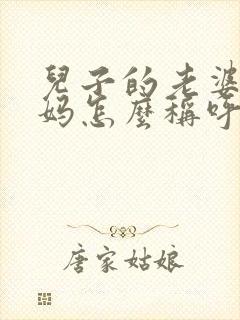 兒子的老婆
妈怎麼稱呼
唐家姑娘